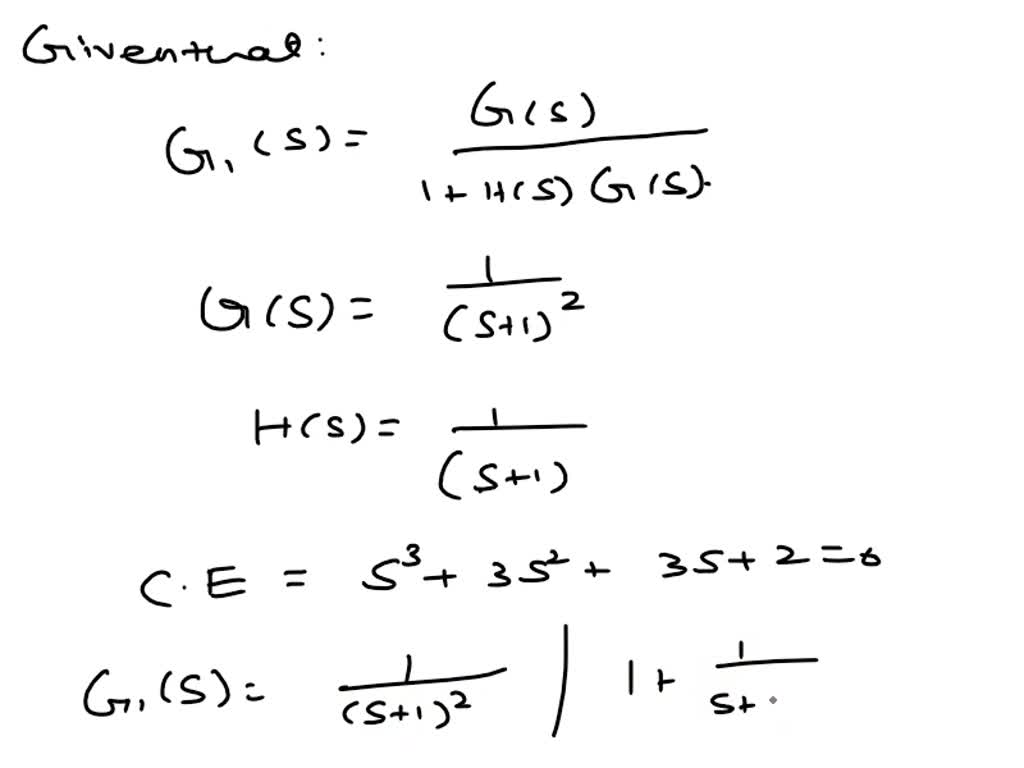 Giventhat:
G₁(s) = G(s) / 1 + H(s) G(s).
G(s) = 1 / (s+1)²
H(s) = 1 / (s+1)
C.E = s³ + 3s² + 3s + 2 = 0
G₁(s) = 1 / (s+1)² / 1 + 1 / s+